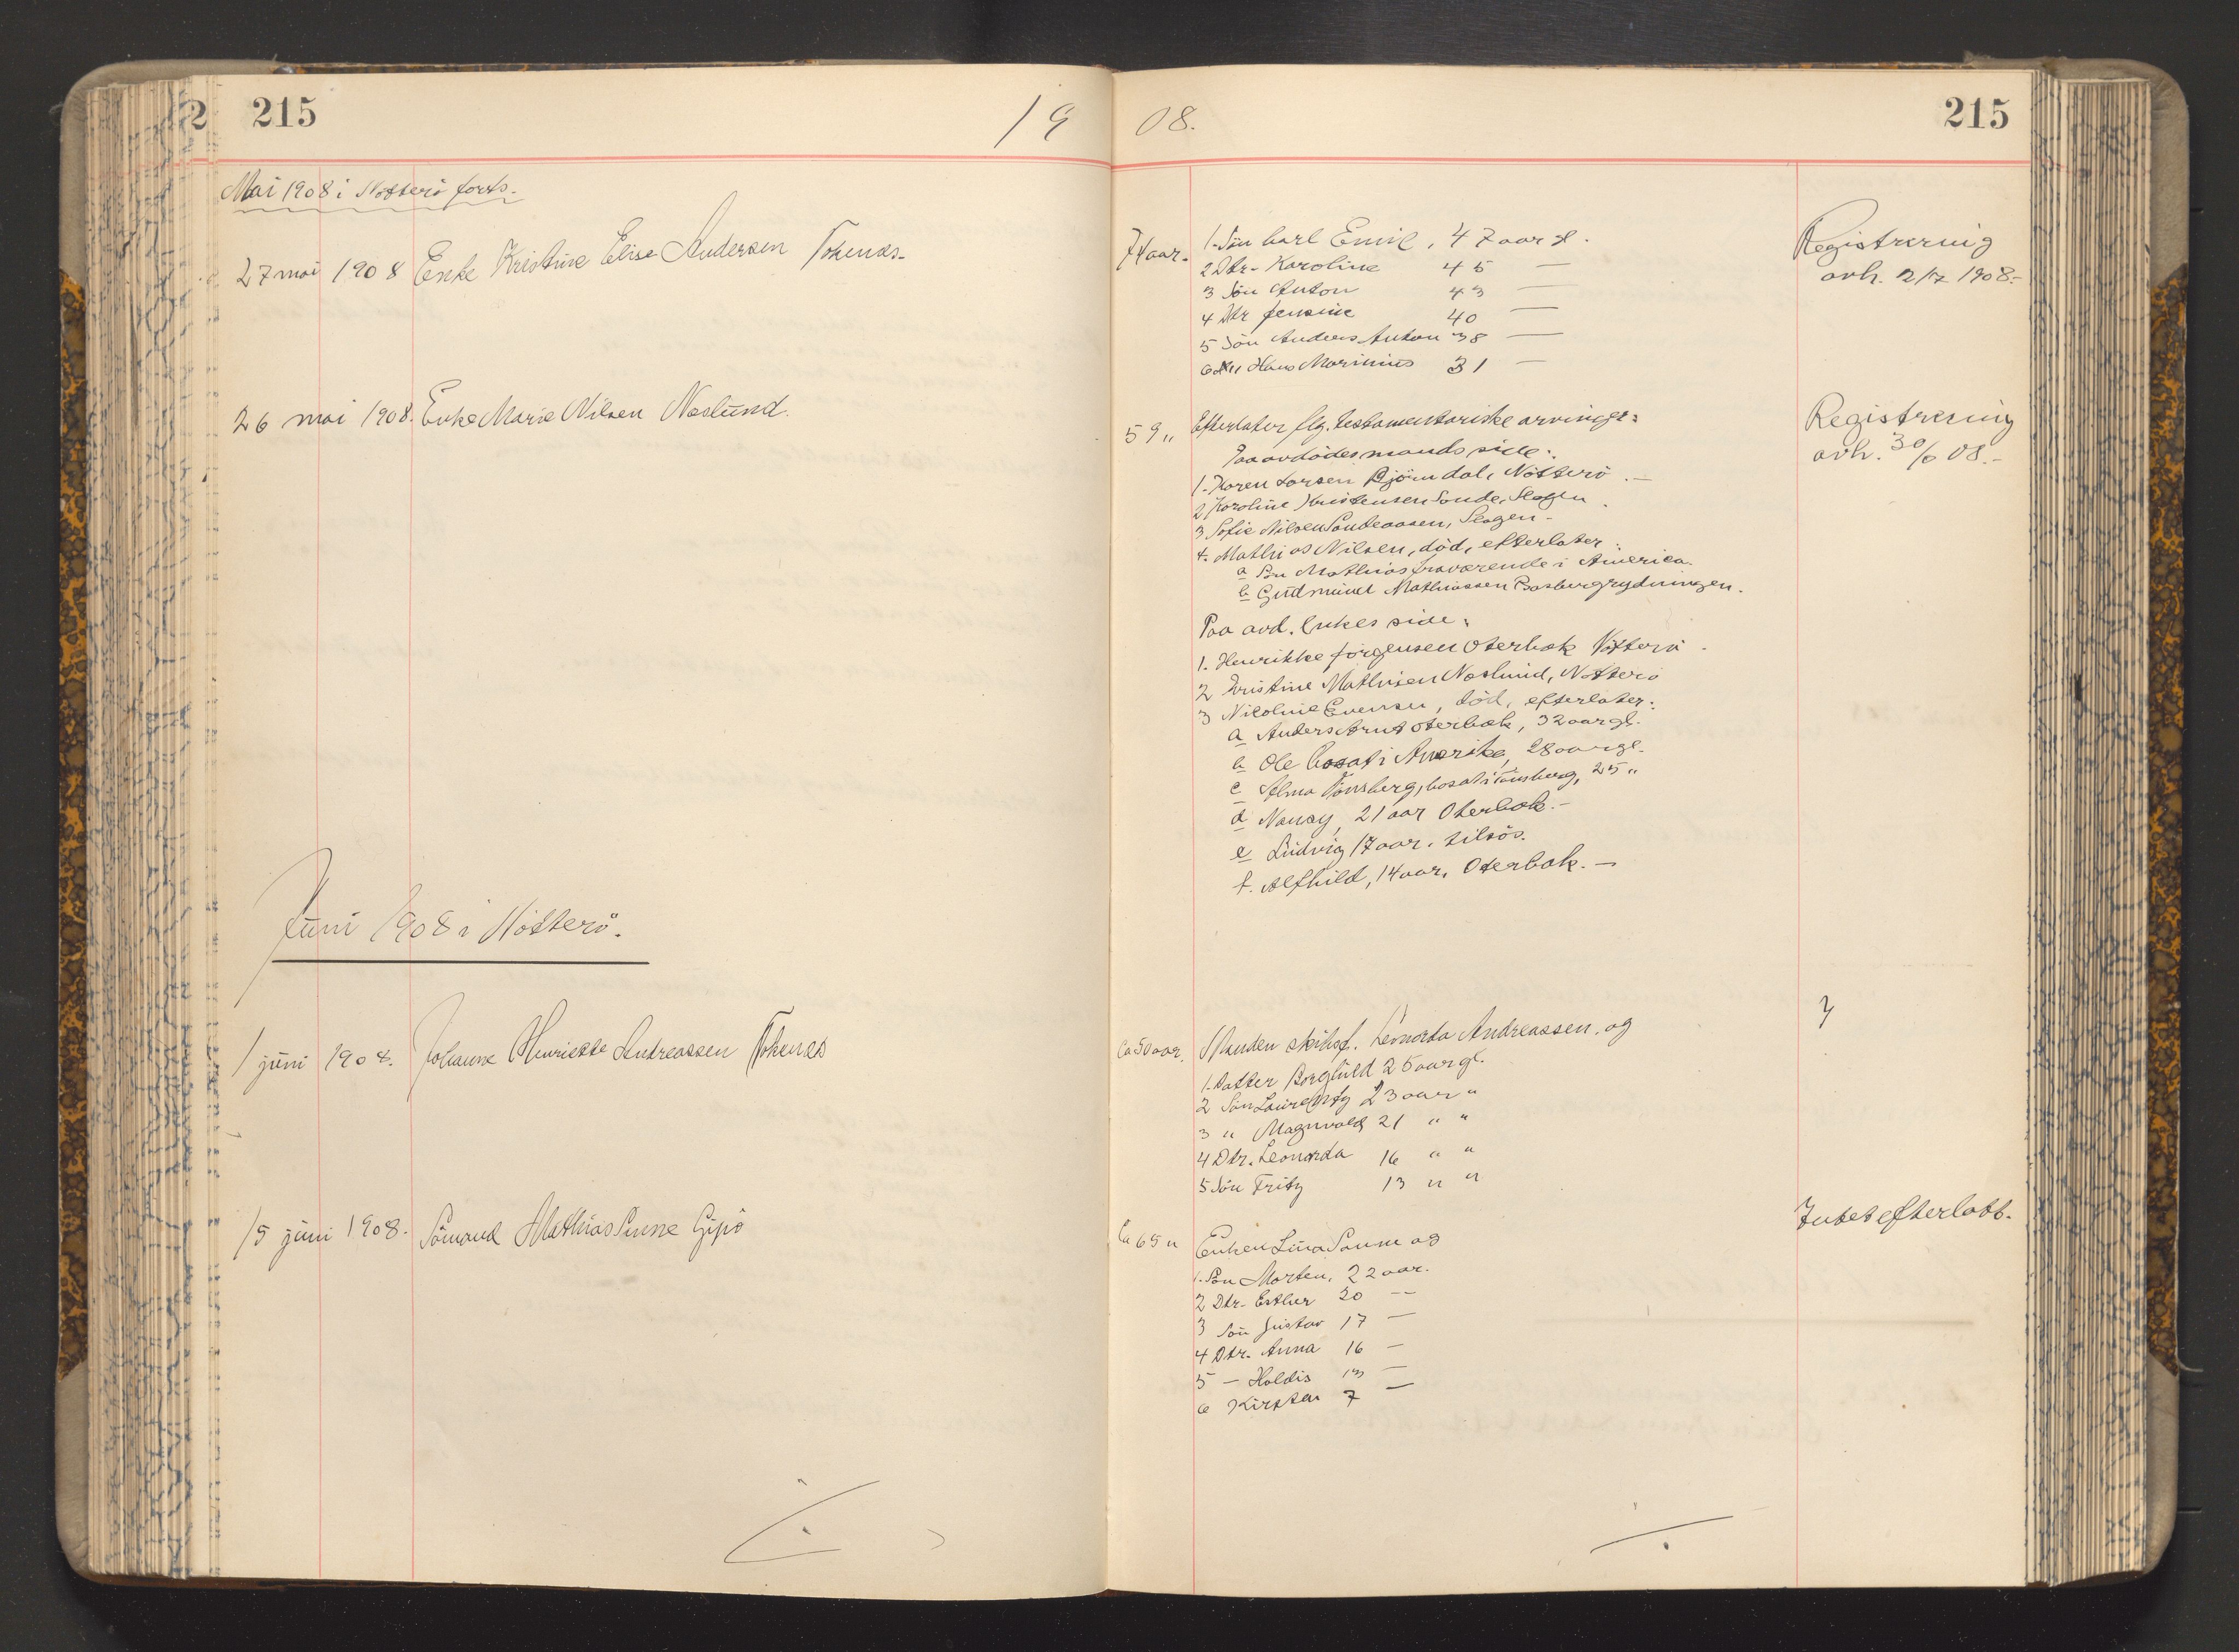 2 215
19 08.
215
Mai 1908 i Nötterö forts.
27 mai 1908 Enke Kristine Elise Andersen Tokenes.
74 aar.
1. Sön Carl Emil, 47 aar gl.
2 Dtr. Karoline 45 —
3 Sön Anton 43 —
4 Dtr Jensine 40 —
5 Sön Anders Anton 38 —
6 Hans Marinius 31 —
Registrering
avh. 2/7 1908.-
26 mai 1908. Enke Marie Nilsen Næslund.
59 "
Efterlater flg. testamentariske arvinger:
Paa avdödes mands side:
1. Karen Larsen Bjørndal, Nötterö.—
2 Karoline Kristensen Sande, Slagen.
3 Sofie Nilsen Sandeaasen, Slagen-
4. Mathias Nilsen, död, efterlater:
a Sön Mathias fraværende i America.
b Gudmund Mathiassen Basbergrydningen.
Paa avd. Enkes side:
1. Henrikke Jörgensen Oterbæk Nötterö.
2 Kristine Mathisen Næslund, Nötterö
3 Nicoline Evensen, död, efterlater:
a Anders Arnt Oterbæk, 32 aar gl.
b Ole bosat i Amerika, 28 aar gl.
c Alma Tönsberg, bosat i Tönsberg, 25 "
d Nancy, 21 aar Oterbæk.-
e Ludvig 17 aar, tilsös.
f. Alfhild, 14 aar, Oterbæk.—
Registrering
avh. 30/6 08.-
Juni 1908 i Nötterö.
1 juni 1908. Johanne Henriette Andreassen Tokenes
Ca 50 aar.
Manden skibsf. Leonarda Andreassen og
1. Datter Borghild 25 aar gl.
2 Sön Laurentz 23 aar "
3 " Magnvald 21 " "
4 Dtr. Leonarda 16 " "
5 Sön Fritz 13 " "
15 juni 1908. Sömand Mathias Sunne Gipö
Ca 65 "
Enken Lina Sunne og
1. Sön Morten, 22 aar.
2 Dtr. Esther 20 —
3 Sön Gustav 17 —
4 Dtr. Anna 16 —
5 — Haldis 13 —
6 Kirsten 7 —
Intet efterlatt.